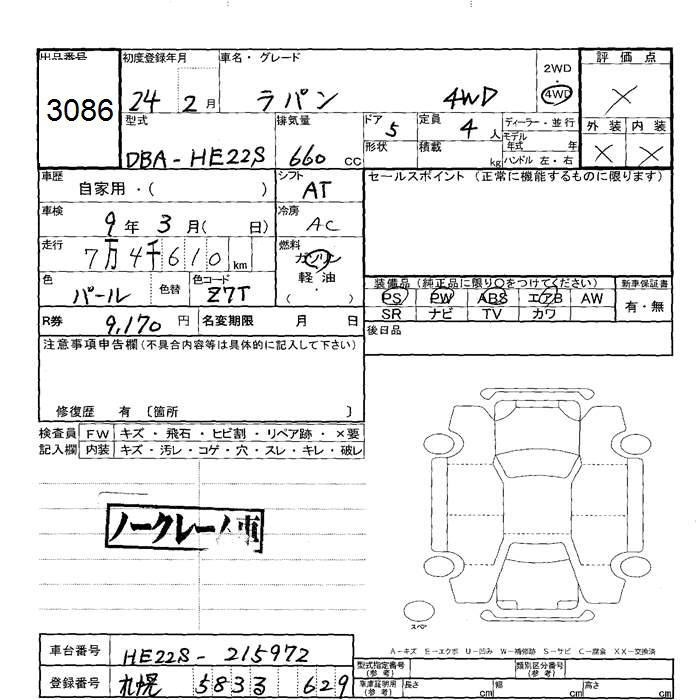 出品番号 初度登録年月 車名・グレード 2WD 評価点
3086 24 2月 ラパン 4WD 4WD ×
型式 排気量 ドア 5 定員 4人 ディーラー・並行 外装 内装
DBA-HE22S 660 CC 形状 積載 kg モデル年式 年 ハンドル 左・右 × ×
車歴 自家用・( ) シフト AT セールスポイント (正常に機能するものに限ります)
車検 9年 3月( 日) 冷房 AC
走行 7万4千610km 燃料 ガソリン
軽油
・( )
色 パール 色替 色コード Z7T 装備品 (純正品に限り○をつけてください) 新車保証書
PS PW ABS エアB AW 有・無
R券 9,170円 名変期限 月 日 SR ナビ TV カワ
注意事項申告欄(不具合内容等は具体的に記入して下さい) 後日品
修復歴 有 〔箇所 〕
検査員 FW キズ・飛石・ヒビ割・リペア跡・×要
記入欄 内装 キズ・汚レ・コゲ・穴・スレ・キレ・破レ
ノークレーム車
スペア
A-キズ E-エクボ U-凹み W-補修跡 S-サビ C-腐食 XX-交換済
車台番号 HE22S-215972 型式指定番号(参考) 類別区分番号(参考)
登録番号 札幌 583る 629 車庫証明用(参考) 長さ cm 幅 cm 高さ cm